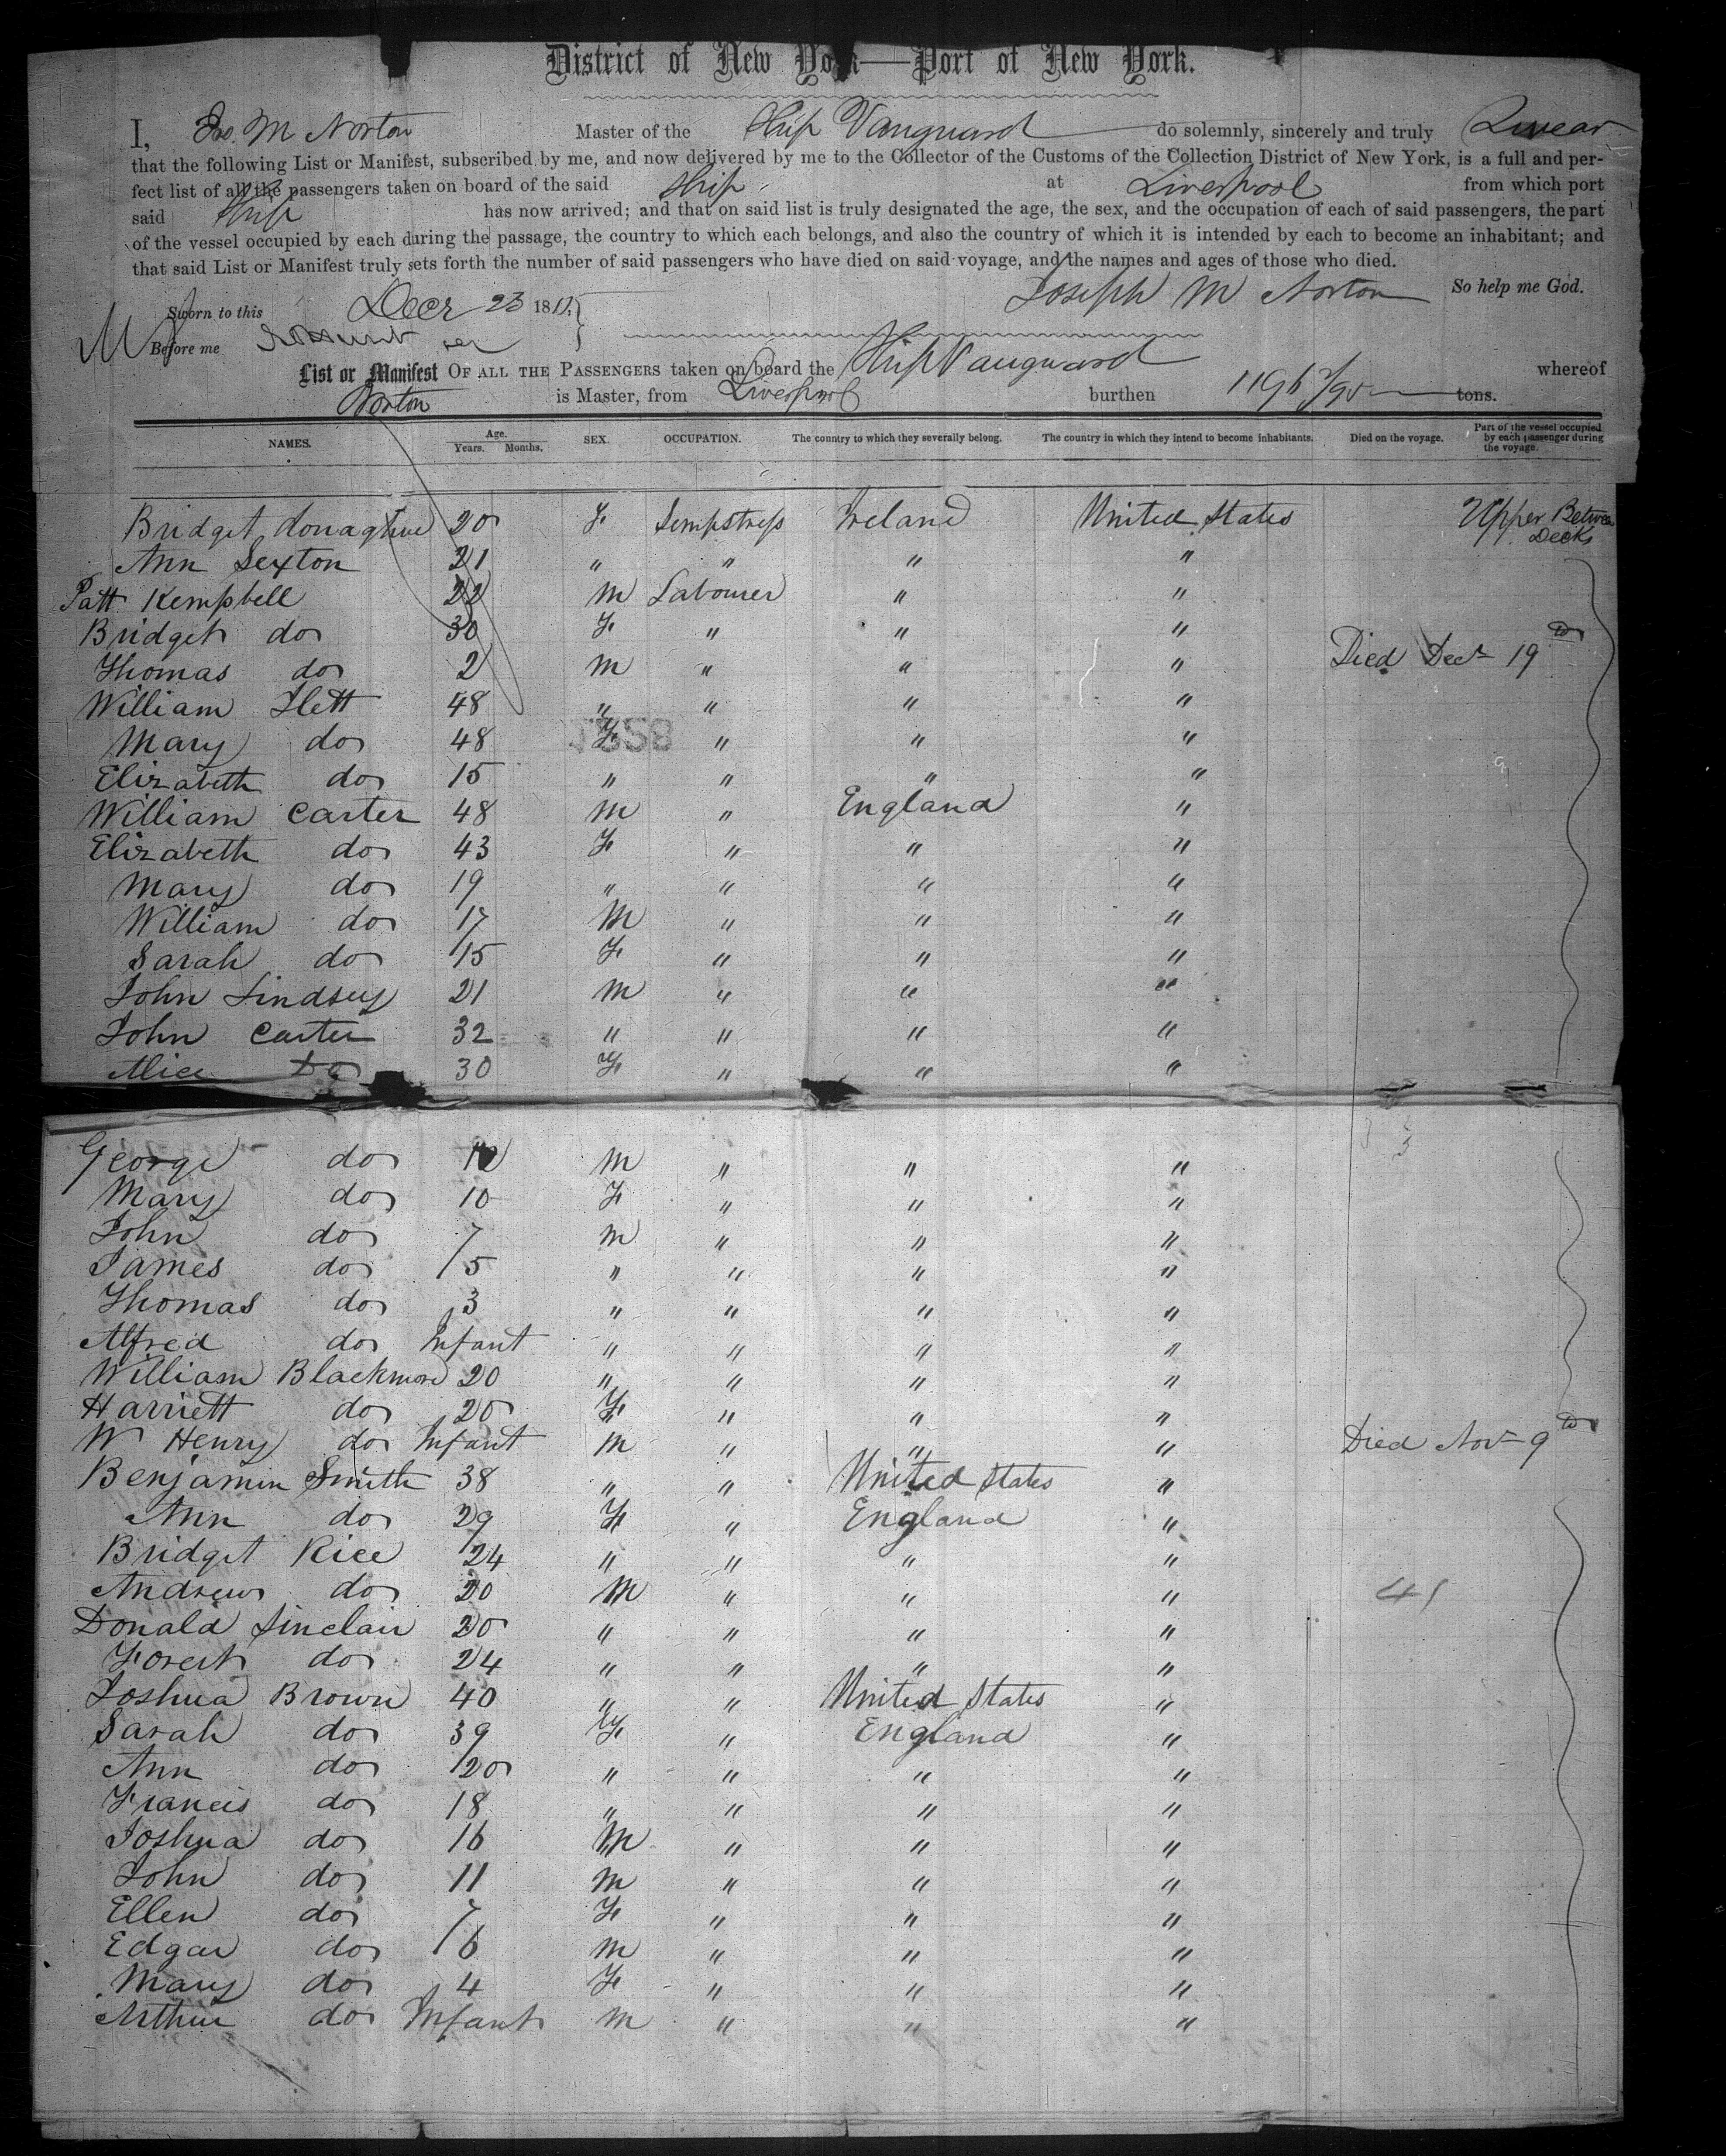 District of New York—Port of New York.
I, Jos. M Norton Master of the Ship Vanguard do solemnly, sincerely and truly Swear
that the following List or Manifest, subscribed by me, and now delivered by me to the Collector of the Customs of the Collection District of New York, is a full and per-
fect list of all the passengers taken on board of the said Ship at Liverpool from which port
said Ship has now arrived; and that on said list is truly designated the age, the sex, and the occupation of each of said passengers, the part
of the vessel occupied by each during the passage, the country to which each belongs, and also the country of which it is intended by each to become an inhabitant; and
that said List or Manifest truly sets forth the number of said passengers who have died on said voyage, and the names and ages of those who died.
Joseph M Norton So help me God.
Sworn to this Decr 23 18
Before me
List or Manifest OF ALL THE PASSENGERS taken on board the Ship Vanguard whereof
Norton is Master, from Liverpool burthen tons.
NAMES. Age. Years. Months. SEX. OCCUPATION. The country to which they severally belong. The country in which they intend to become inhabitants. Died on the voyage. Part of the vessel occupied by each passenger during the voyage.
Bridget donaghue 20 F Sempstress Ireland United States Upper Between Decks
Ann Sexton 21 " " " "
Patt Kempbell 22 M Labourer " "
Bridget do 30 F " " "
Thomas do 2 M " " " Died Decr 19th
William Flett 48 " " " "
Mary do 48 F " " "
1828
Elizabeth do 15 " " " "
William Carter 48 M " England "
Elizabeth do 43 F " " "
Mary do 19 " " " "
William do 17 M " " "
Sarah do 15 F " " "
John Lindsey 21 M " " "
John Carter 32 " " " "
Alice Do 30 F " " "
George do 12 M " " "
Mary do 10 F " " "
John do 7 M " " "
James do 5 " " " "
Thomas do 3 " " " "
Alfred do Infant " " " "
William Blackmore 20 " " " "
Harriett do 20 F " " "
W Henry do Infant M " " " Died Nov 9th
Benjamin Smith 38 " " United States "
Ann do 29 F " England "
Bridget Rice 24 " " " "
Andrew do 20 M " " " 41
Donald Sinclair 20 " " " "
Forest do 24 " " " "
Joshua Brown 40 " " United States "
Sarah do 39 F " England "
Ann do 20 " " " "
Francis do 18 " " " "
Joshua do 16 M " " "
John do 11 M " " "
Ellen do 7 F " " "
Edgar do 6 M " " "
Mary do 4 F " " "
Arthur do Infant M " " "